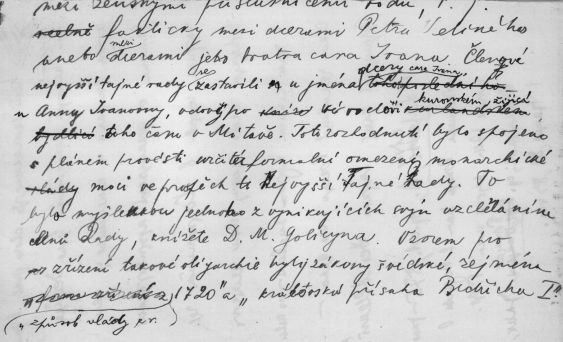 mezi ženskými příslušnicemi rodu, t. j.
fakticky mezi dcerami Petra Velikého
anebo mezi dcerami jeho bratra cara Ivana. Členové
nejvyšší tajné rady se zastavili u jména dcery cara Ivana,
Anny Ivanovny, vdovy po vévodovi kuronském, žijící
toho času v Mitavě. Toto rozhodnutí bylo spojeno
s plánem provésti určité formalní omezení monarchické
moci ve prospěch té Nejvyšší Tajné Rady. To
bylo myšlenkou jednoho z vynikajících svým vzděláním
členů Rady, knížete D. M. Golicyna. Vzorem pro
zřízení takové oligarchie byly zákony švédské, zejména
1720 "a „královská přísaha Bedřicha I."
„způsob vlády z r.